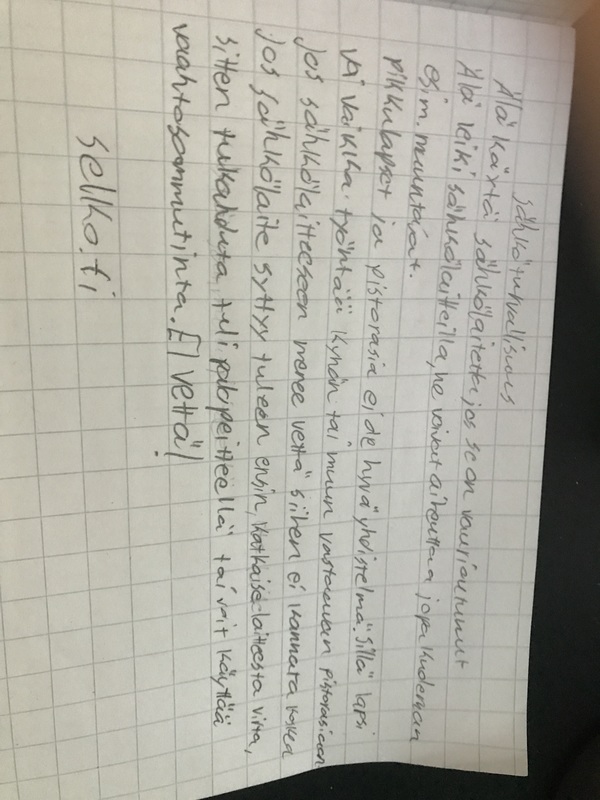 sähköturvallisuus
Älä käytä sähkölaitetta jos se on vaurioitunut
Älä leiki sähkölaitteilla, ne voivat aiheuttaa jopa kuoleman
esim. muuntajat.
pikkulapset ja pistorasia ei ole hyvä yhdistelmä. Sillä lapsi
voi vaikka työntää kynän tai muun vastaavan pistorasiaan
jos sähkölaitteeseen menee vettä siihen ei kannata koskea
jos sähkölaite syttyy tuleen ensin, katkaise laitteesta virta,
sitten tukahduta tuli palopeitteellä tai voit käyttää
vaahtosammutinta. EI vettä!
selko.fi